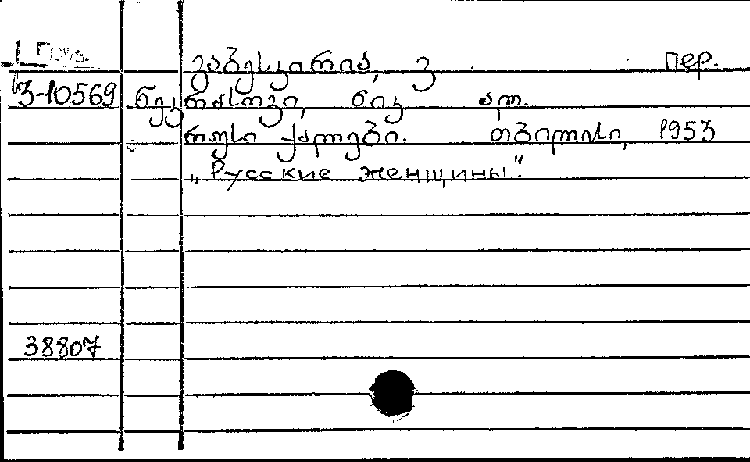 1 Груз.
გაბესკირია, ვ пер.
З-10569 ნეკრასოვი, ნიკ ალ.
რუსი ქალები. თბილისი, 1953
„Русские женщины".
38807